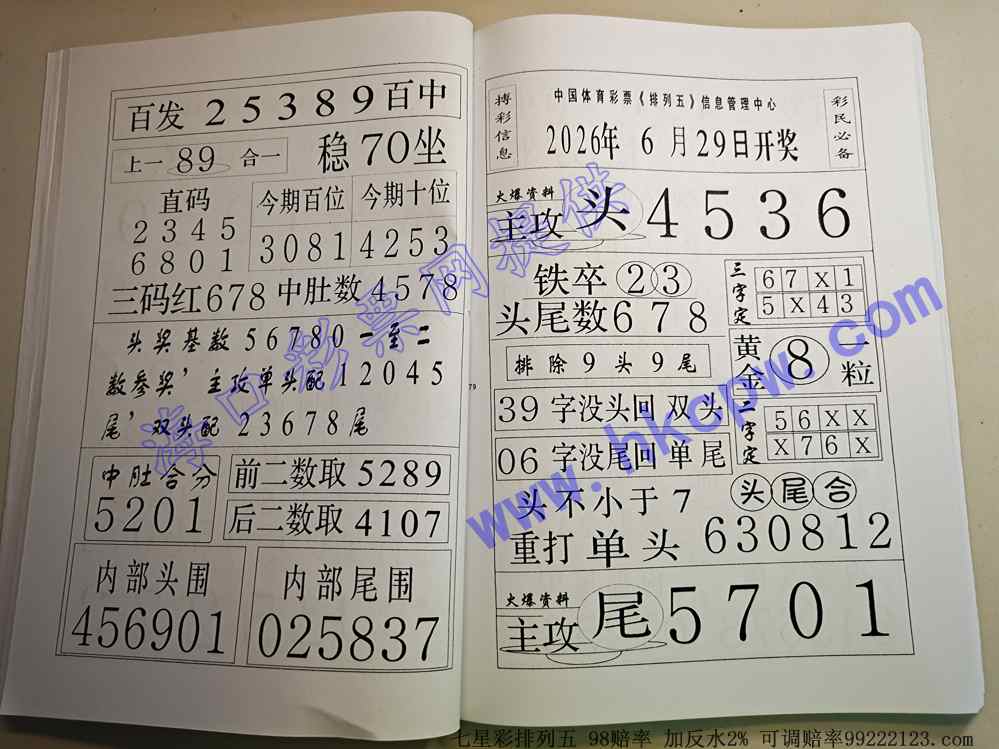 百发 25389 百中
上一 89 合一
稳 70 坐
直码
2345
6801
今期百位
3081
今期十位
4253
三码红 678 中肚数 4578
头奖基数 56780 一至二
数参奖，主攻单头配 12045
尾，双头配 23678 尾
中肚合分
5201
前二数取 5289
后二数取 4107
内部头围
456901
内部尾围
025837
79
搏彩信息
中国体育彩票《排列五》信息管理中心
2026年 6 月 29日开奖
彩民必备
火爆资料
主攻 头 4 5 3 6
铁卒 ② ③
头尾数 6 7 8
三字定
6 7 X 1
5 X 4 3
排除 9 头 9 尾
黄金 8 一粒
39 字没头回 双 头
06 字没尾回 单 尾
二字定
5 6 X X
X 7 6 X
头不小于 7
头 尾 合
重打 单 头 630812
火爆资料
主攻 尾 5 7 0 1
海口彩票网提供
www.hkcpw.com
七星彩排列五 98赔率 加反水2% 可调赔率99222123.com